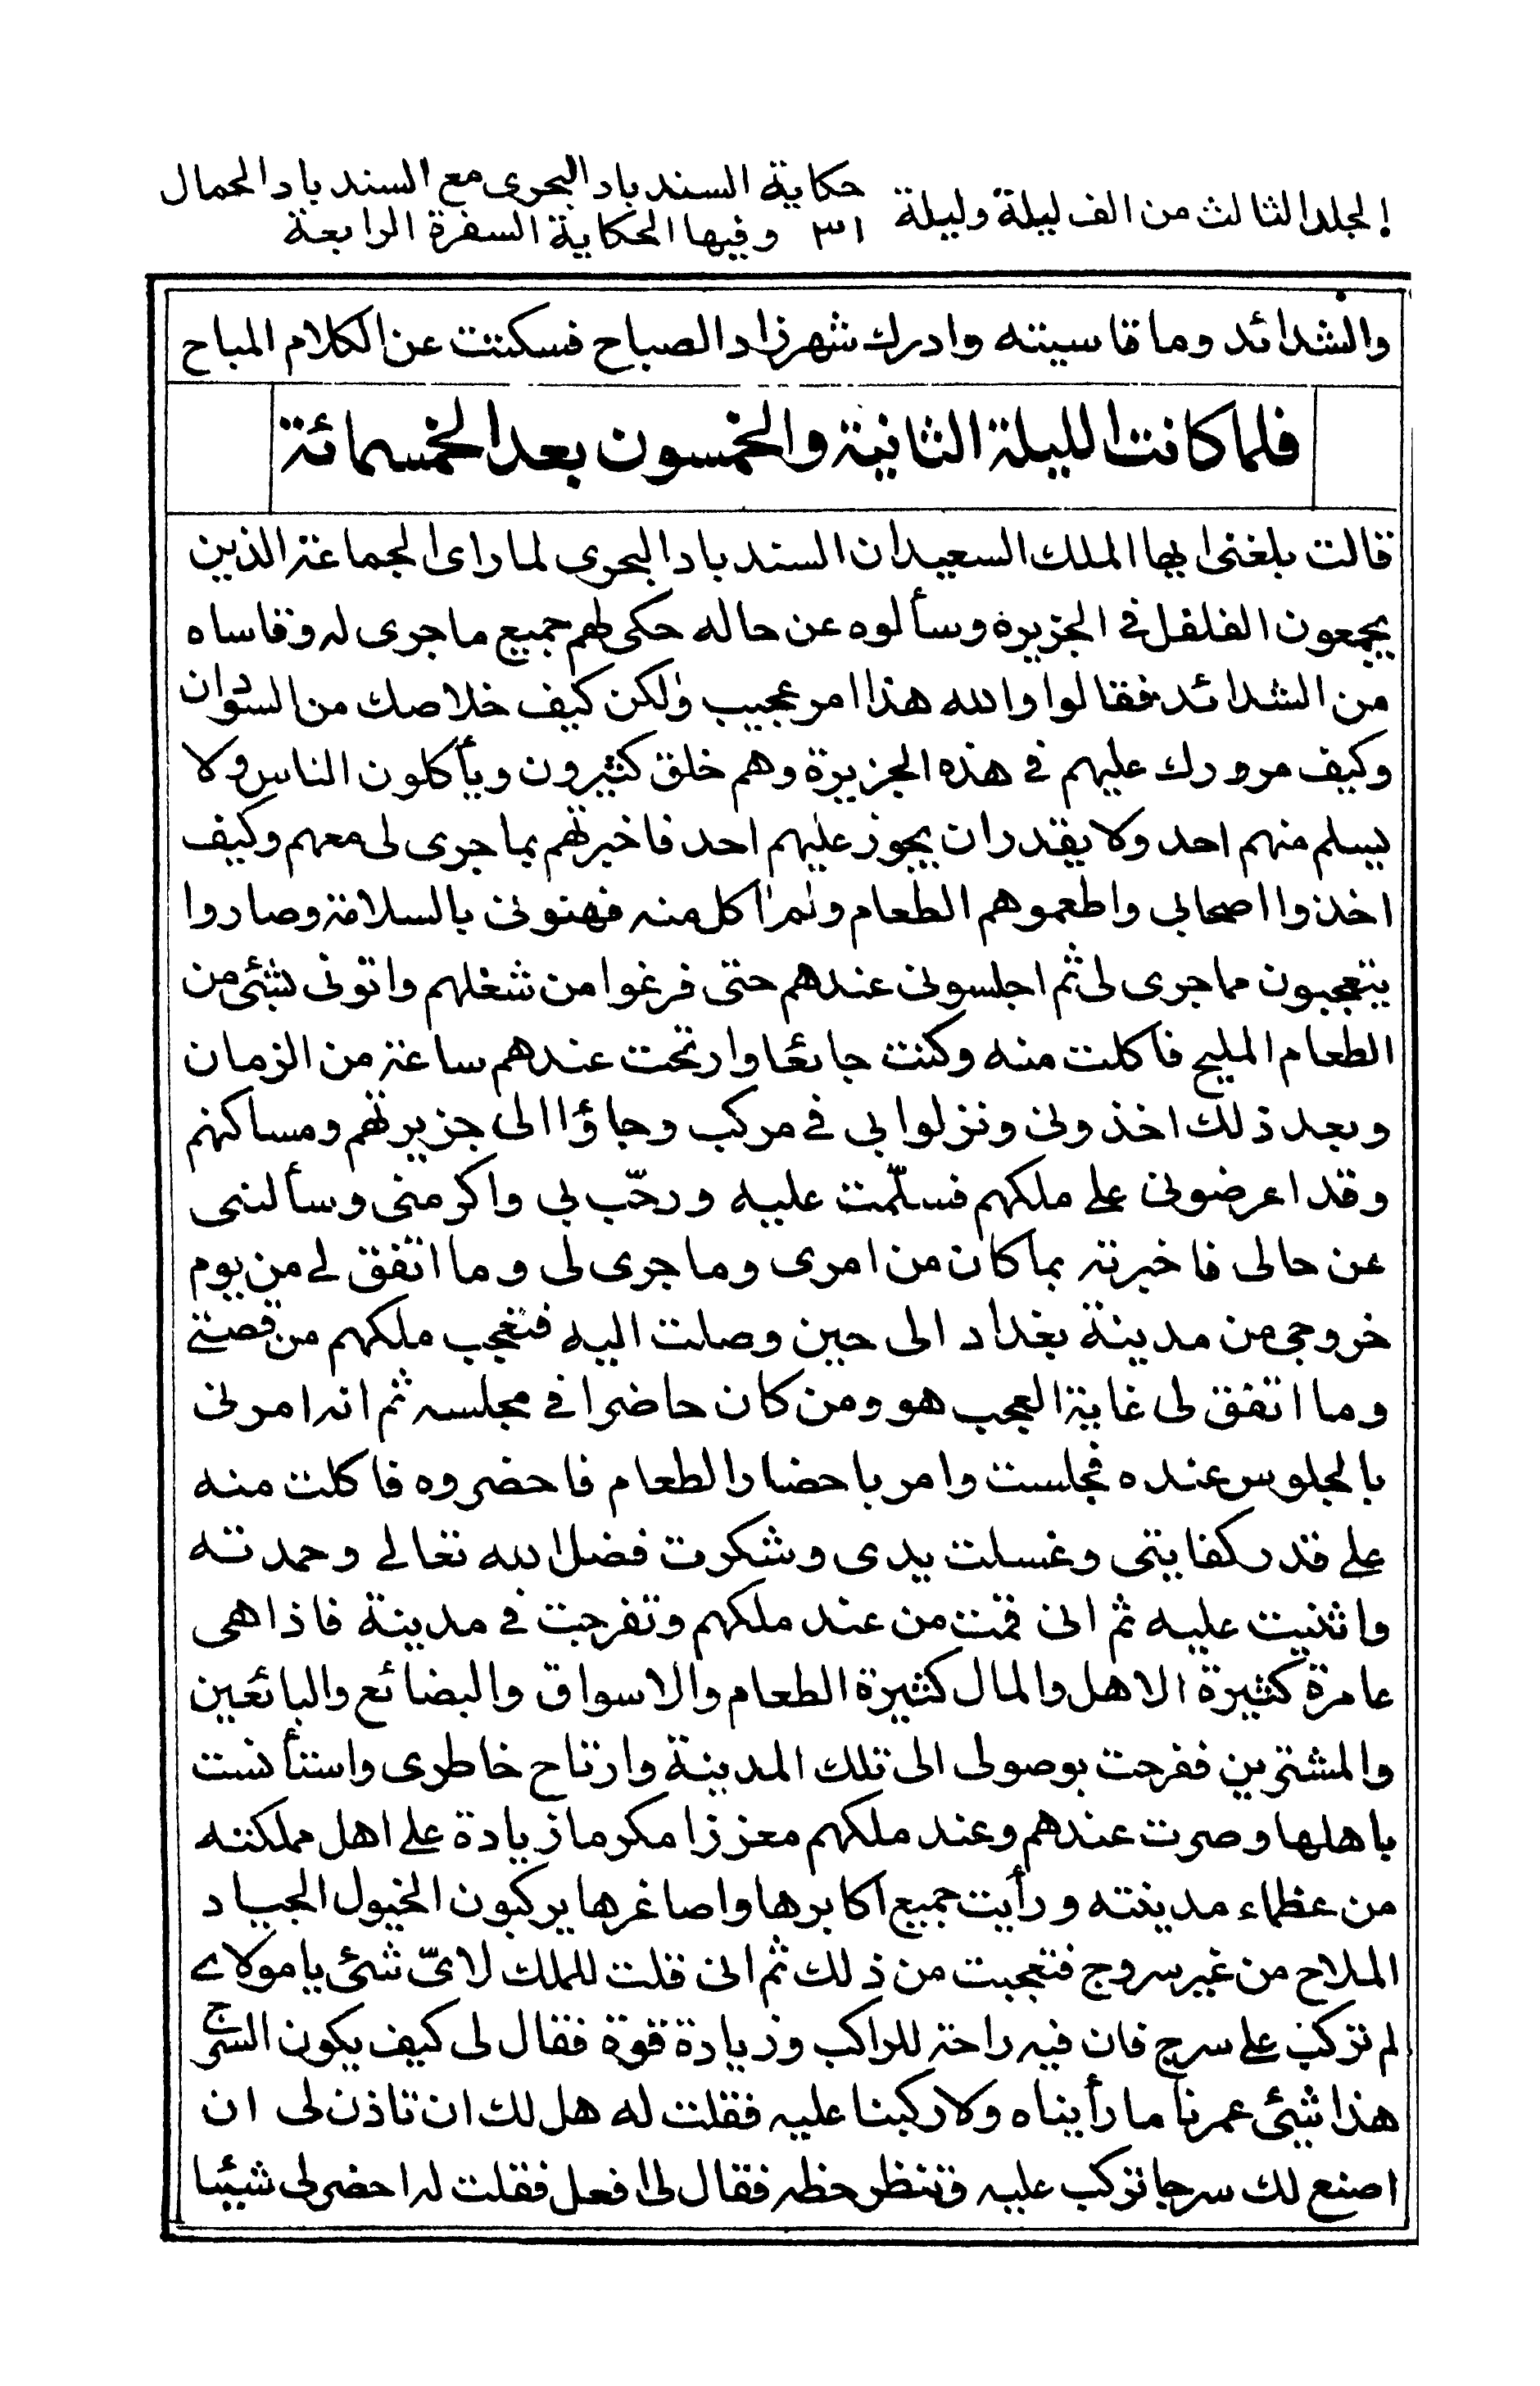 المجلد الثالث من الف ليلة وليلة ٣١ حكاية السندباد البحرى مع السندباد الحمال
وفيها الحكاية السفرة الرابعة
والشدائد وما قاسيته وادرك شهرزاد الصباح فسكتت عن الكلام المباح
فلما كانت الليلة الثانية والخمسون بعد الخمسمائة
قالت بلغنى ايها الملك السعيد ان السندباد البحرى لما راى الجماعة الذين
يجمعون الفلفل فى الجزيرة وسألوه عن حاله حكى لهم جميع ما جرى له وقاساه
من الشدائد فقالوا والله هذا امر عجيب ولكن كيف خلاصك من السودان
وكيف مرورك عليهم فى هذه الجزيرة وهم خلق كثيرون ويأكلون الناس ولا
يسلم منهم احد ولا يقدر ان يجوز عليهم احد فاخبرتهم بما جرى لى معهم وكيف
اخذوا اصحابى واطعموهم الطعام ولم اكل منه فهنونى بالسلامة وصاروا
يتعجبون مما جرى لى ثم اجلسونى عندهم حتى فرغوا من شغلهم واتونى بشئى من
الطعام المليح فاكلت منه وكنت جائعا وارتحت عندهم ساعة من الزمان
وبعد ذلك اخذونى ونزلوا بى فى مركب وجاؤا الى جزيرتهم ومساكنهم
وقد اعرضونى على ملكهم فسلّمت عليه ورحّب بى واكرمنى وسألنى
عن حالى فاخبرته بما كان من امرى وما جرى لى وما اتفق لى من يوم
خروجى من مدينة بغداد الى حين وصلت اليه فتعجب ملكهم من قصتى
وما اتفق لى غاية العجب هو ومن كان حاضرا فى مجلسه ثم انه امرنى
بالجلوس عنده فجلست وامر باحضار الطعام فاحضروه فاكلت منه
على قدر كفايتى وغسلت يدى وشكرت فضل الله تعالى وحمدته
واثنيت عليه ثم انى قمت من عند ملكهم وتفرجت فى مدينة فاذا هى
عامرة كثيرة الاهل والمال كثيرة الطعام والاسواق والبضائع والبائعين
والمشترين ففرحت بوصولى الى تلك المدينة وارتاح خاطرى واستأنست
باهلها وصرت عندهم وعند ملكهم معززا مكرما زيادة على اهل مملكته
من عظماء مدينته ورأيت جميع اكابرها واصاغرها يركبون الخيول الجياد
الملاح من غير سروج فتعجبت من ذلك ثم انى قلت للملك لاىّ شئى يا مولاى
لم تركب على سرج فان فيه راحة للراكب وزيادة قوة فقال لى كيف يكون السرج
هذا شئى عمرنا ما رأيناه ولا ركبنا عليه فقلت له هل لك ان تاذن لى ان
اصنع لك سرجا تركب عليه وتنظر حظه فقال لى افعل فقلت له احضر لى شيئا